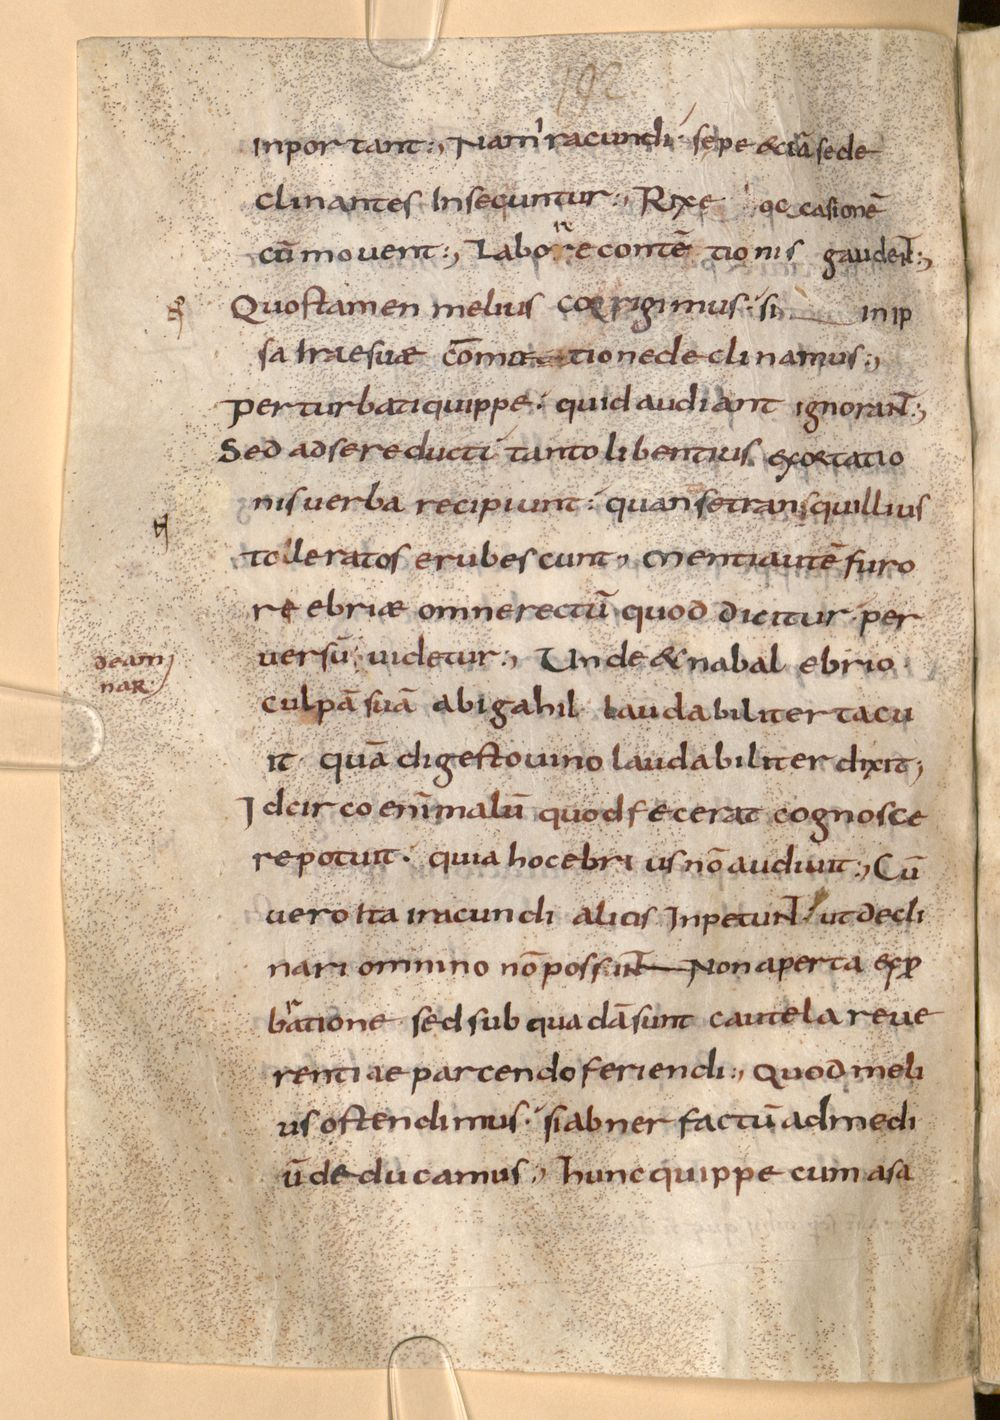 192
inportant:, Nam iracundi· sepe &iā sede
clinantes Insecuntur:, Rixe occasionē
cū movent:, Labore contē tionis gaudent:,
Quos tamen melius corrigimus· si in ip
sa irae suae cōmotione declinamus:,
perturbati quippe· quid audiant ignorant:,
Sed ad se reducti tanto libentius exortatio
nis verba recipiunt: quan se transquillius
tolleratos erubescunt, Menti autē furo
re ebriae omne rectū quod dicitur· per
versū videtur:, Unde & nabal ebrio·
culpā suā abigahil laudabiliter tacu
it· quā digesto vino laudabiliter dixit,
Idcirco enī malū quod fecerat cognosce
re potuit· quia hoc ebrius nō audivit:, Cū
vero ita iracundi alios Inpetunt· ut decli
nari omnino nō possunt Non aperta exp
bratione sed sub quadā sunt cautela reve
rentiae parcendo feriendi:, Quod meli
us ostendimus· si abner factū ad medi
ū deducamus:, hunc quippe cum asa